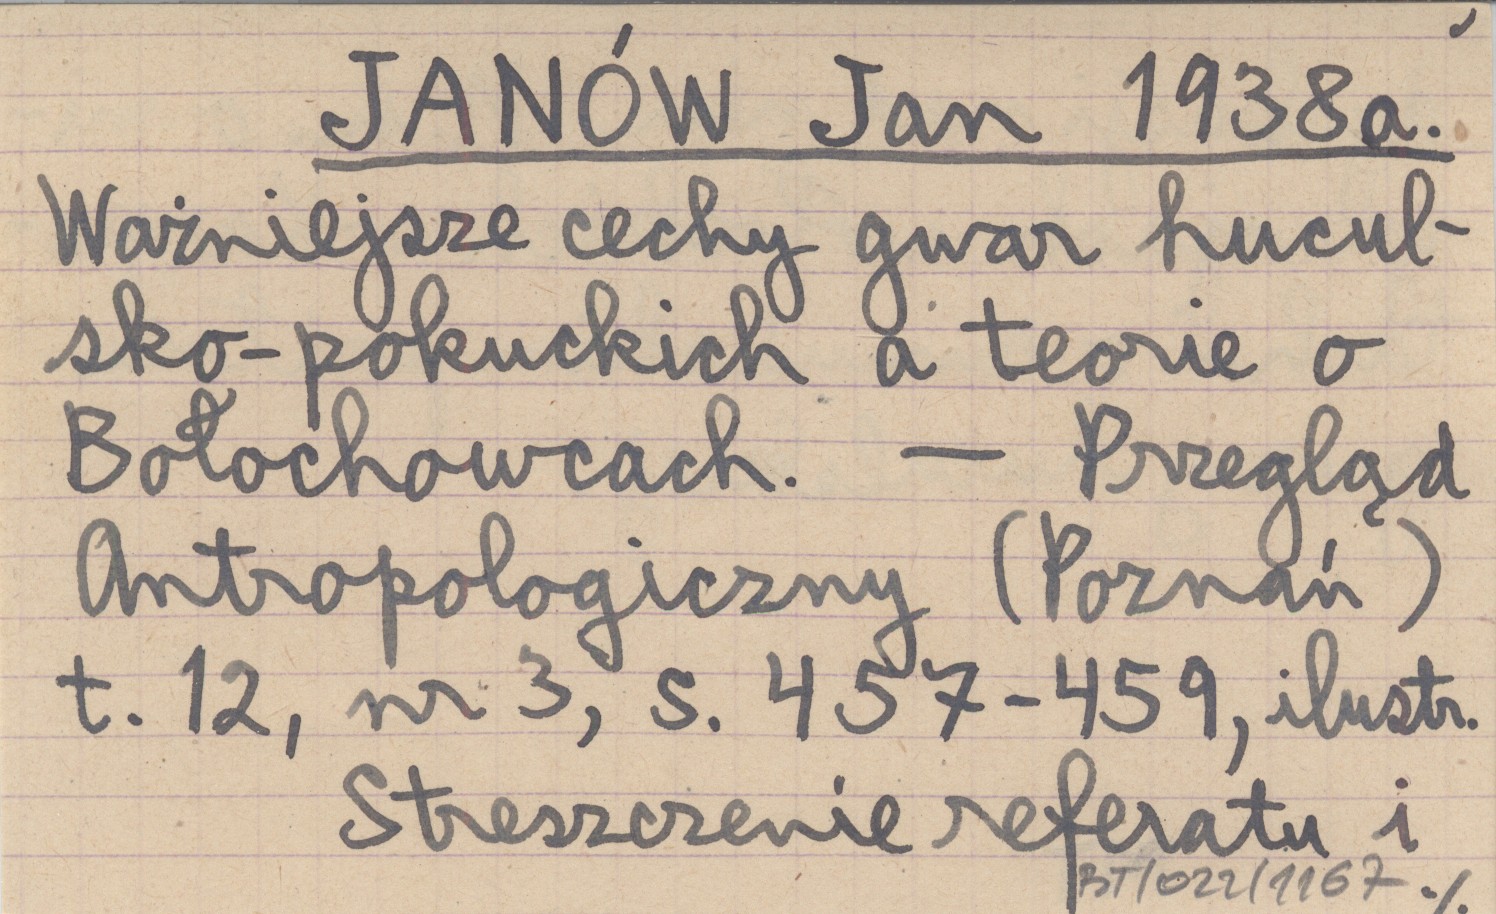 JANÓW Jan 1938a.
Ważniejsze cechy gwar hucul-
sko-pokuckich a teorie o
Bołochowcach. — Przegląd
Antropologiczny (Poznań)
t. 12, nr 3, s. 457-459, ilustr.
Streszczenie referatu i
BT/022/1167 ./.